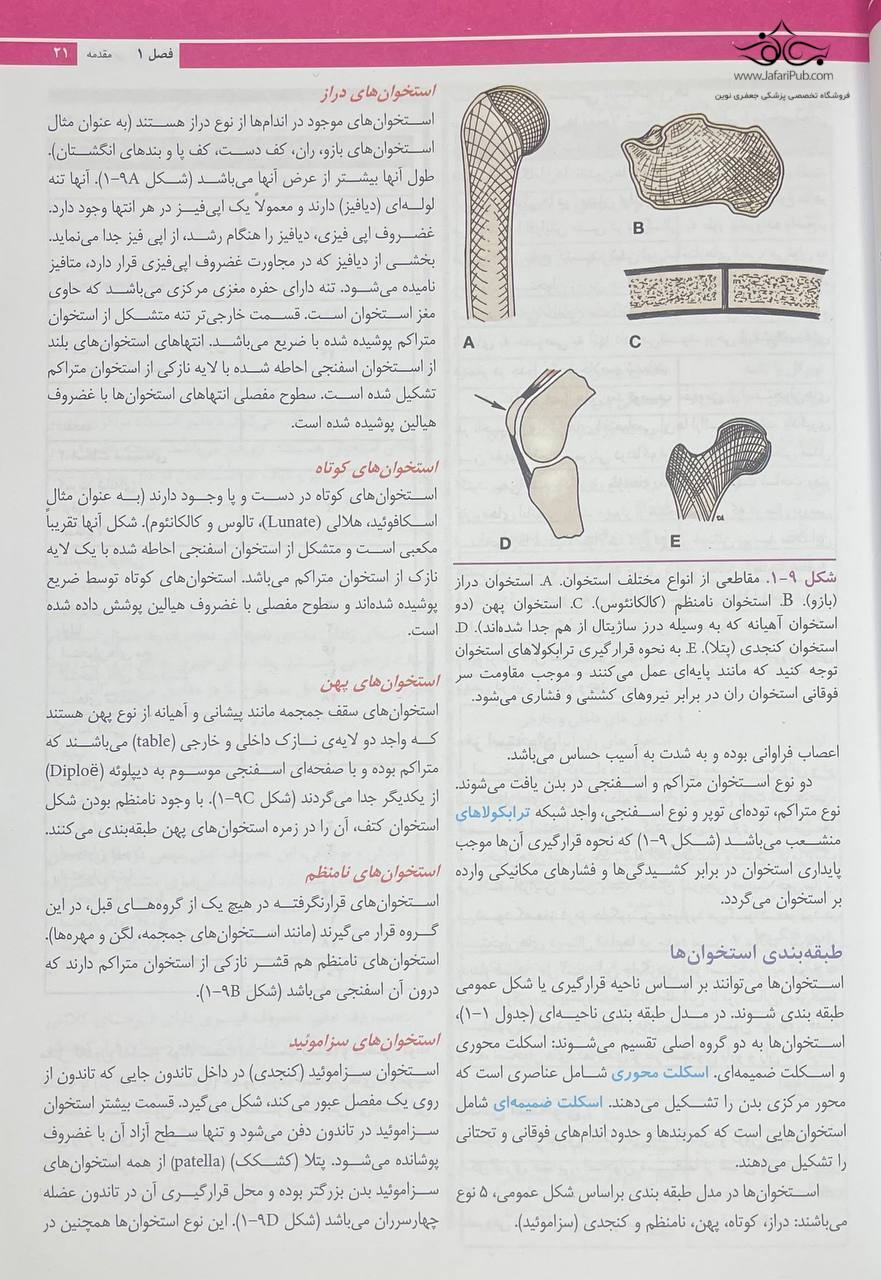 فصل ۱ مقدمه ۲۱
www.JafariPub.com
فروشگاه تخصصی پزشکی جعفری نوین
A
B
C
D
E
شکل ۹-۱. مقاطعی از انواع مختلف استخوان. A. استخوان دراز
(بازو). B. استخوان نامنظم (کالکانئوس). C. استخوان پهن (دو
استخوان آهیانه که به وسیله درز ساژیتال از هم جدا شده‌اند). D.
استخوان کنجدی (پتلا). E. به نحوه قرارگیری ترابکولاهای استخوان
توجه کنید که مانند پایه‌ای عمل می‌کنند و موجب مقاومت سر
فوقانی استخوان ران در برابر نیروهای کششی و فشاری می‌شود.
اعصاب فراوانی بوده و به شدت به آسیب حساس می‌باشد.
دو نوع استخوان متراکم و اسفنجی در بدن یافت می‌شوند.
نوع متراکم، توده‌ای توپر و نوع اسفنجی، واجد شبکه ترابکولاهای
منشعب می‌باشد (شکل ۹-۱) که نحوه قرارگیری آن‌ها موجب
پایداری استخوان در برابر کشیدگی‌ها و فشارهای مکانیکی وارده
بر استخوان می‌گردد.
طبقه‌بندی استخوان‌ها
استخوان‌ها می‌توانند بر اساس ناحیه قرارگیری یا شکل عمومی
طبقه بندی شوند. در مدل طبقه بندی ناحیه‌ای (جدول ۱-۱)،
استخوان‌ها به دو گروه اصلی تقسیم می‌شوند: اسکلت محوری
و اسکلت ضمیمه‌ای. اسکلت محوری شامل عناصری است که
محور مرکزی بدن را تشکیل می‌دهند. اسکلت ضمیمه‌ای شامل
استخوان‌هایی است که کمربندها و حدود اندام‌های فوقانی و تحتانی
را تشکیل می‌دهند.
استخوان‌ها در مدل طبقه بندی براساس شکل عمومی، ۵ نوع
می‌باشند: دراز، کوتاه، پهن، نامنظم و کنجدی (سزاموئید).
استخوان‌های دراز
استخوان‌های موجود در اندام‌ها از نوع دراز هستند (به عنوان مثال
استخوان‌های بازو، ران، کف دست، کف پا و بندهای انگشتان).
طول آنها بیشتر از عرض آنها می‌باشد (شکل ۹A-۱). آنها تنه
لوله‌ای (دیافیز) دارند و معمولاً یک اپی‌فیز در هر انتها وجود دارد.
غضروف اپی فیزی، دیافیز را هنگام رشد، از اپی فیز جدا می‌نماید.
بخشی از دیافیز که در مجاورت غضروف اپی‌فیزی قرار دارد، متافیز
نامیده می‌شود. تنه دارای حفره مغزی مرکزی می‌باشد که حاوی
مغز استخوان است. قسمت خارجی‌تر تنه متشکل از استخوان
متراکم پوشیده شده با ضریع می‌باشد. انتهاهای استخوان‌های بلند
از استخوان اسفنجی احاطه شده با لایه نازکی از استخوان متراکم
تشکیل شده است. سطوح مفصلی انتهاهای استخوان‌ها با غضروف
هیالین پوشیده شده است.
استخوان‌های کوتاه
استخوان‌های کوتاه در دست و پا وجود دارند (به عنوان مثال
اسکافوئید، هلالی (Lunate)، تالوس و کالکانئوم). شکل آنها تقریباً
مکعبی است و متشکل از استخوان اسفنجی احاطه شده با یک لایه
نازک از استخوان متراکم می‌باشد. استخوان‌های کوتاه توسط ضریع
پوشیده شده‌اند و سطوح مفصلی با غضروف هیالین پوشش داده شده
است.
استخوان‌های پهن
استخوان‌های سقف جمجمه مانند پیشانی و آهیانه از نوع پهن هستند
که واجد دو لایه‌ی نازک داخلی و خارجی (table) می‌باشند که
متراکم بوده و با صفحه‌ای اسفنجی موسوم به دیپلوئه (Diploë)
از یکدیگر جدا می‌گردند (شکل ۹C-۱). با وجود نامنظم بودن شکل
استخوان کتف، آن را در زمره استخوان‌های پهن طبقه‌بندی می‌کنند.
استخوان‌های نامنظم
استخوان‌های قرارنگرفته در هیچ یک از گروه‌های قبل، در این
گروه قرار می‌گیرند (مانند استخوان‌های جمجمه، لگن و مهره‌ها).
استخوان‌های نامنظم هم قشر نازکی از استخوان متراکم دارند که
درون آن اسفنجی می‌باشد (شکل ۹B-۱).
استخوان‌های سزاموئید
استخوان سزاموئید (کنجدی) در داخل تاندون جایی که تاندون از
روی یک مفصل عبور می‌کند، شکل می‌گیرد. قسمت بیشتر استخوان
سزاموئید در تاندون دفن می‌شود و تنها سطح آزاد آن با غضروف
پوشانده می‌شود. پتلا (کشکک) (patella) از همه استخوان‌های
سزاموئید بدن بزرگتر بوده و محل قرارگیری آن در تاندون عضله
چهارسرران می‌باشد (شکل ۹D-۱). این نوع استخوان‌ها همچنین در